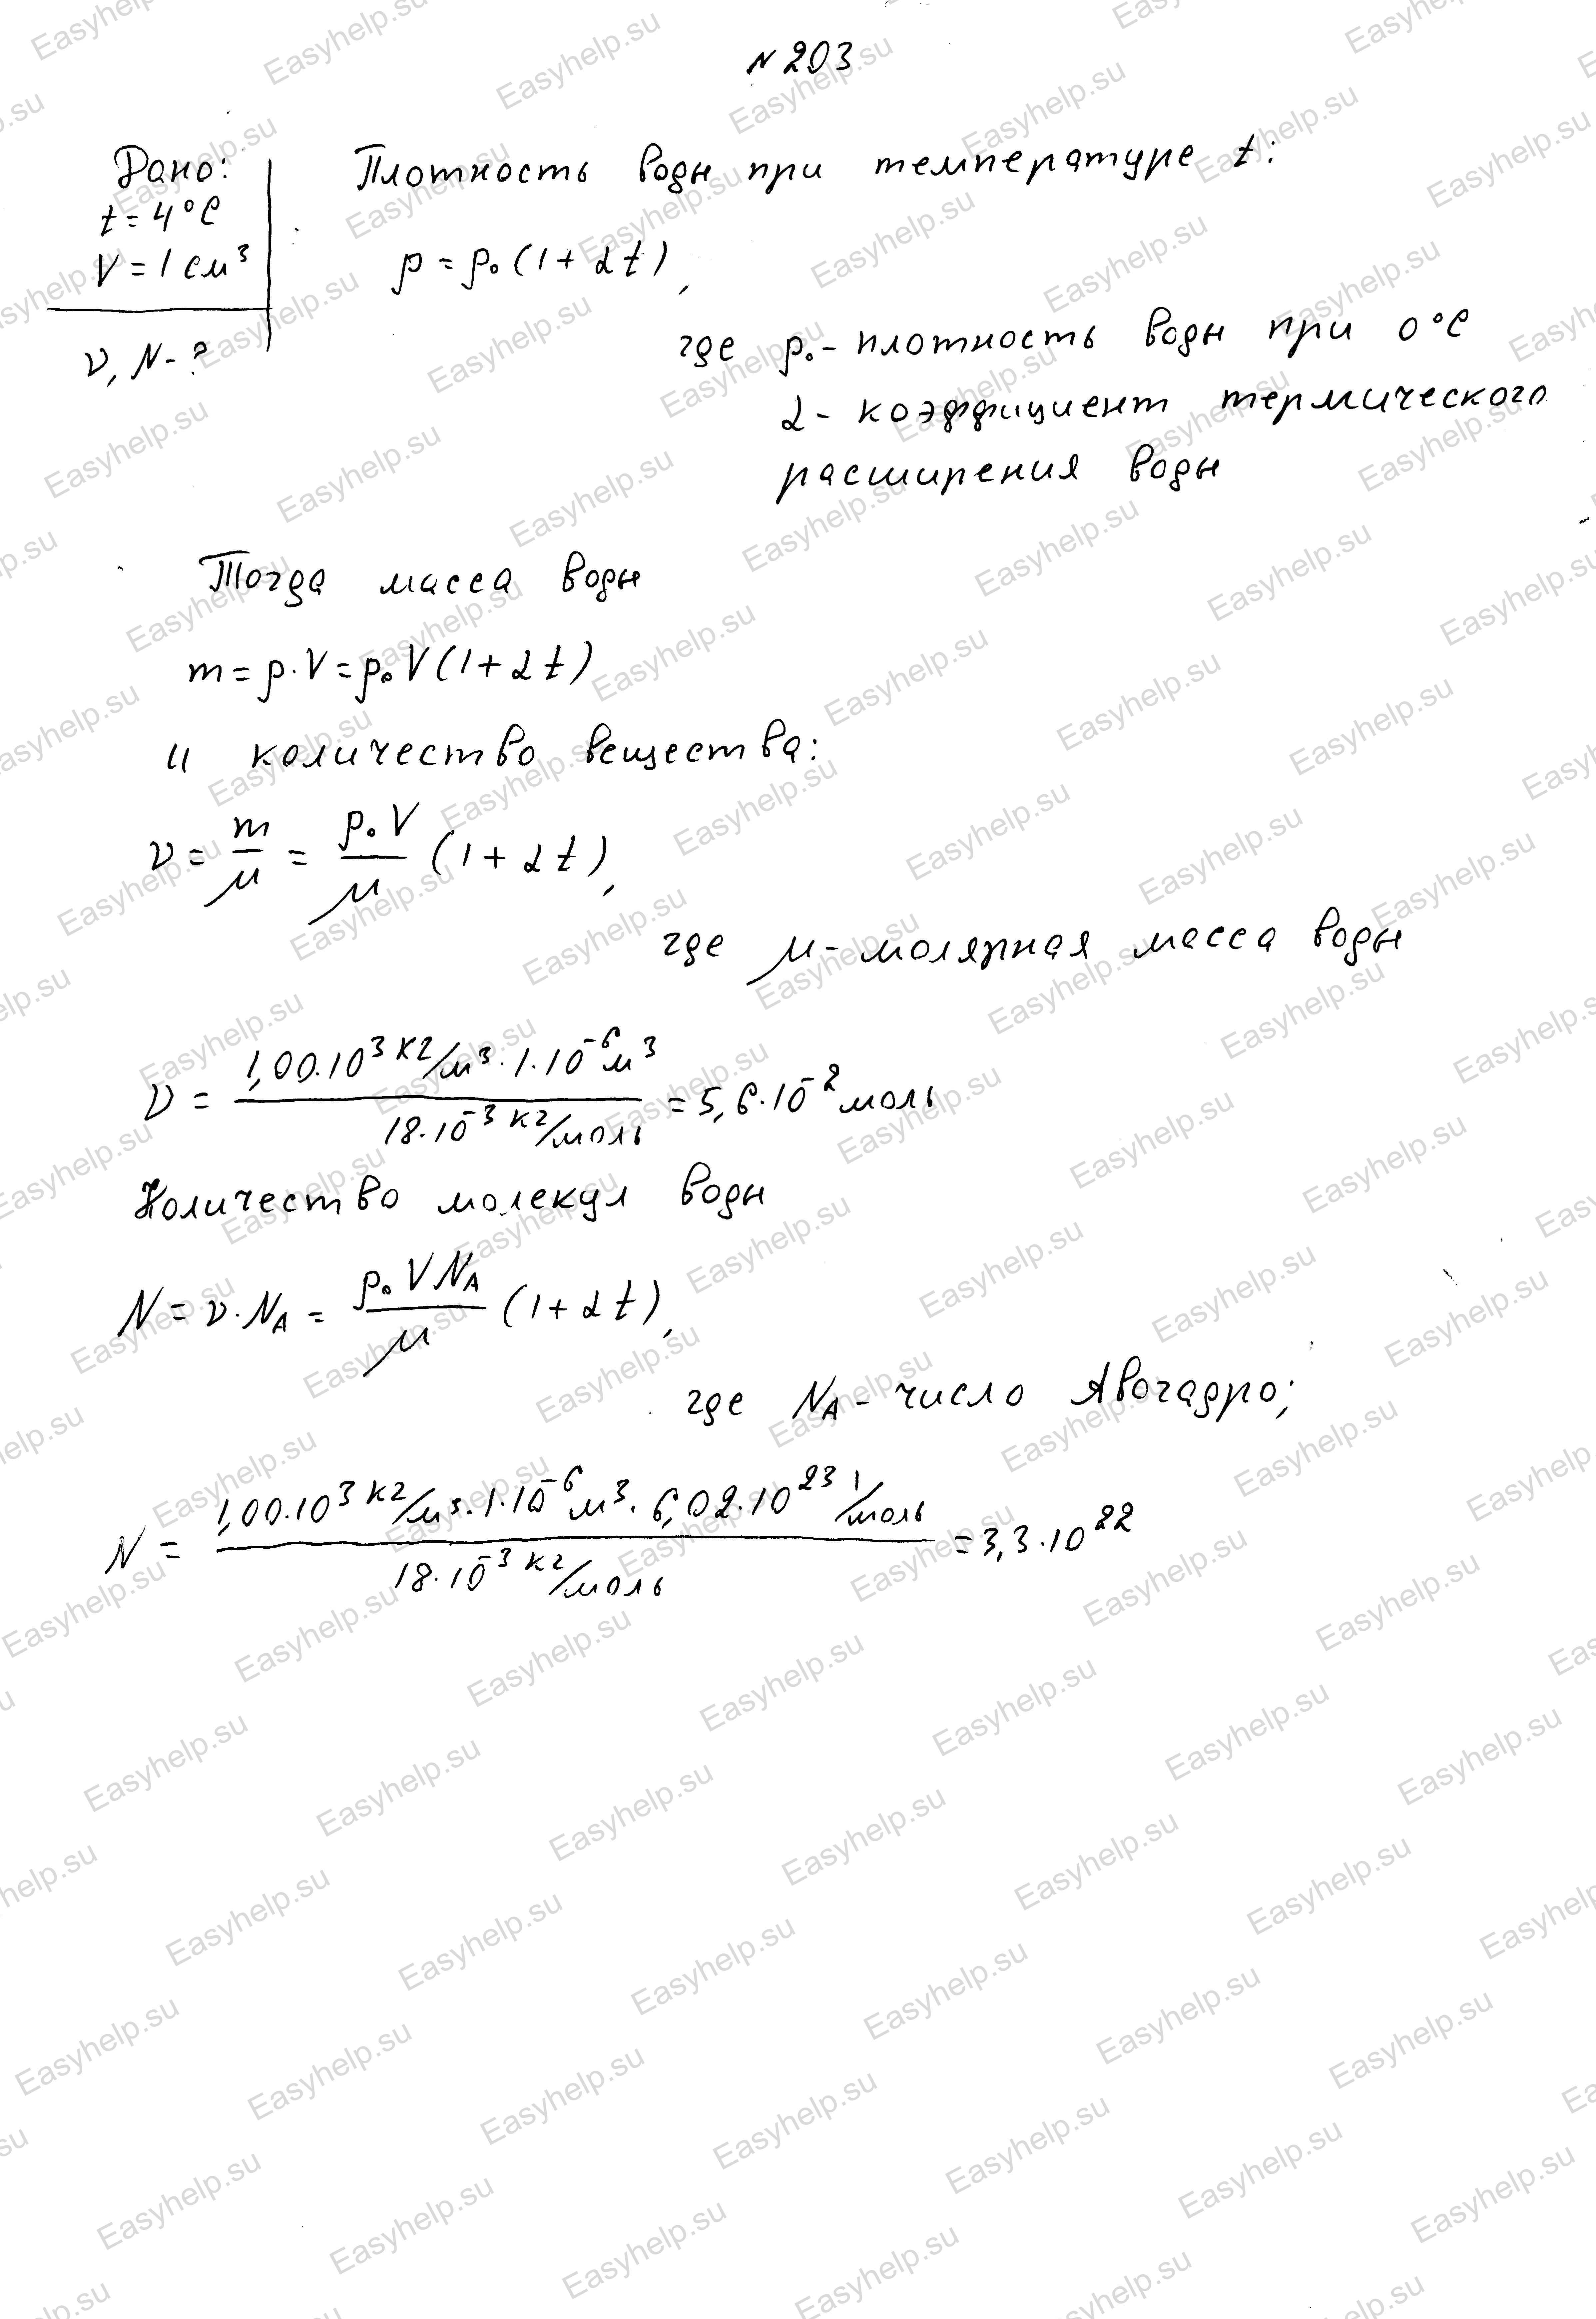 N 203
Дано:
t = 4°C
V = 1 см³
ν, N - ?
Плотность воды при температуре t:
ρ = ρ₀(1 + αt),
где ρ₀ - плотность воды при 0°C
α - коэффициент термического
расширения воды
Тогда масса воды
m = ρ·V = ρ₀V(1 + αt)
и количество вещества:
ν = m/μ = ρ₀V/μ (1 + αt),
где μ - молярная масса воды
ν = 1,00·10³ кг/м³·1·10⁻⁶ м³ / 18·10⁻³ кг/моль = 5,6·10⁻² моль
Количество молекул воды
N = ν·N_A = ρ₀VN_A/μ (1 + αt),
где N_A - число Авогадро;
N = 1,00·10³ кг/м³·1·10⁻⁶ м³·6,02·10²³ 1/моль / 18·10⁻³ кг/моль = 3,3·10²²
Easyhelp.su